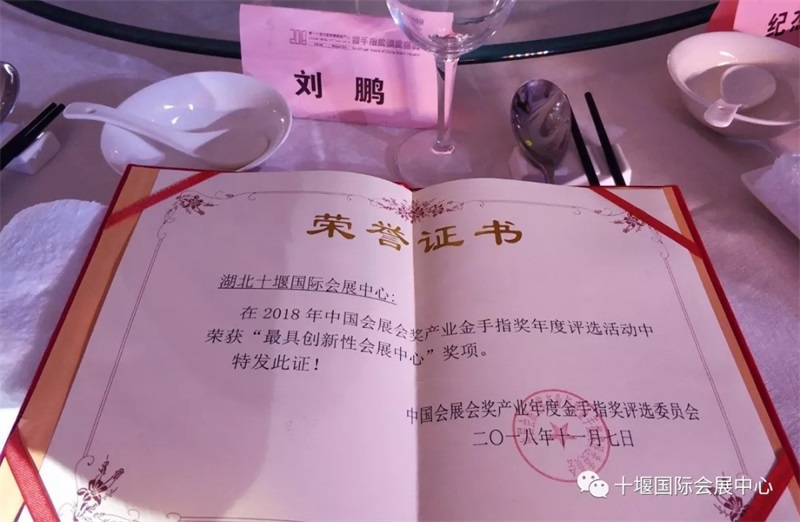 刘 鹏
纪
荣誉证书
湖北十堰国际会展中心：
在2018年中国会展会奖产业金手指奖年度评选活动中
荣获“最具创新性会展中心”奖项。
特发此证！
中国会展会奖产业年度金手指奖评选委员会
二〇一八年十一月七日
十堰国际会展中心